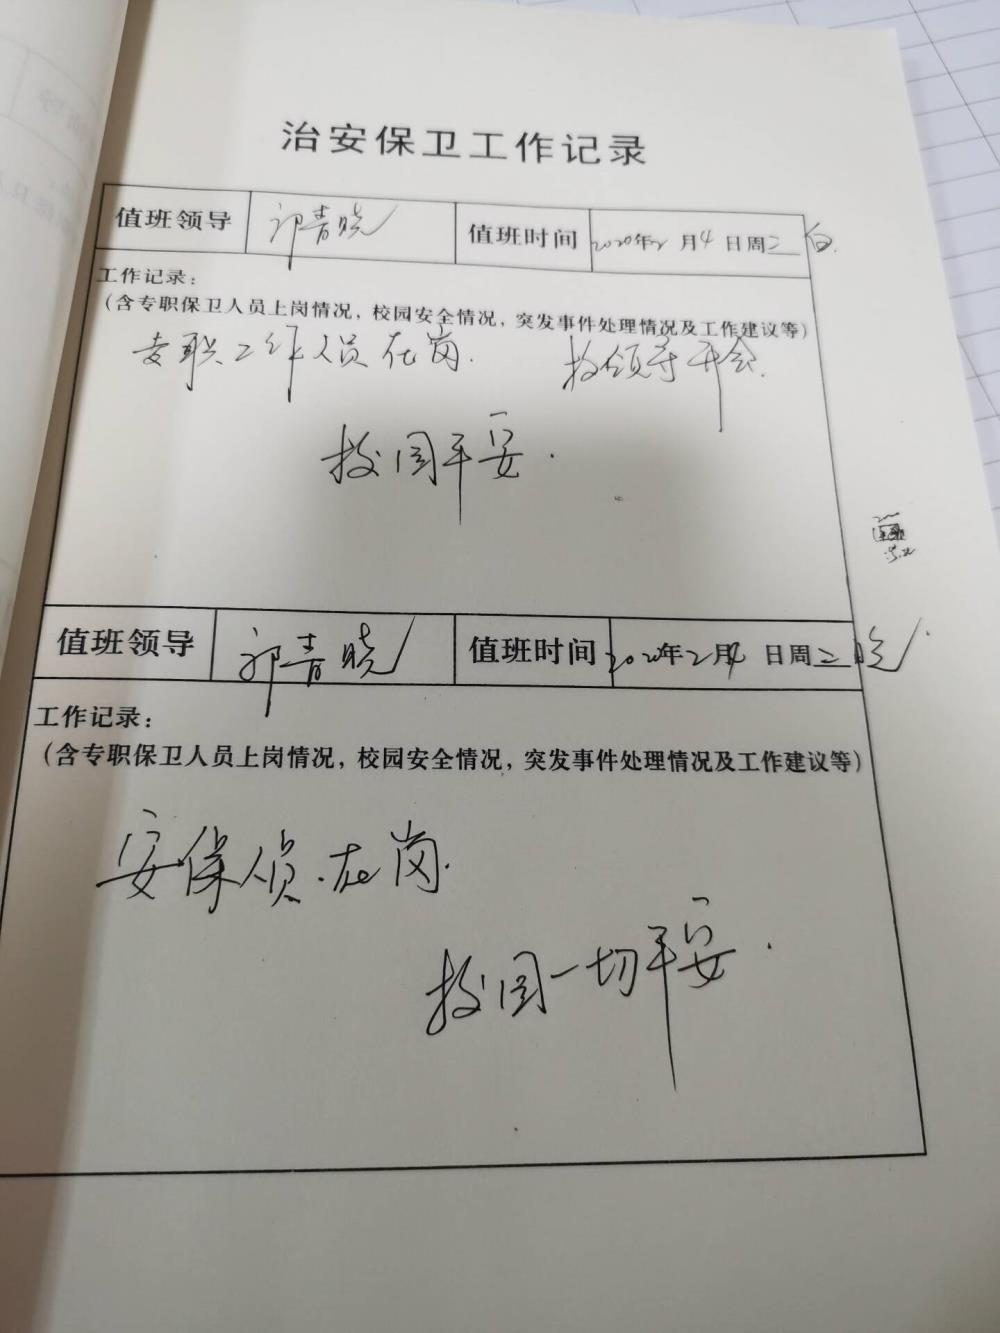 治安保卫工作记录
值班领导 郭青晓 值班时间 2020年2月4日周二 白.
工作记录:
(含专职保卫人员上岗情况,校园安全情况,突发事件处理情况及工作建议等)
专职工作人员在岗. 校领导开会.
校园平安.
值班领导 郭青晓 值班时间 2020年2月4日周二 晚
工作记录:
(含专职保卫人员上岗情况,校园安全情况,突发事件处理情况及工作建议等)
安保人员.在岗.
校园一切平安.